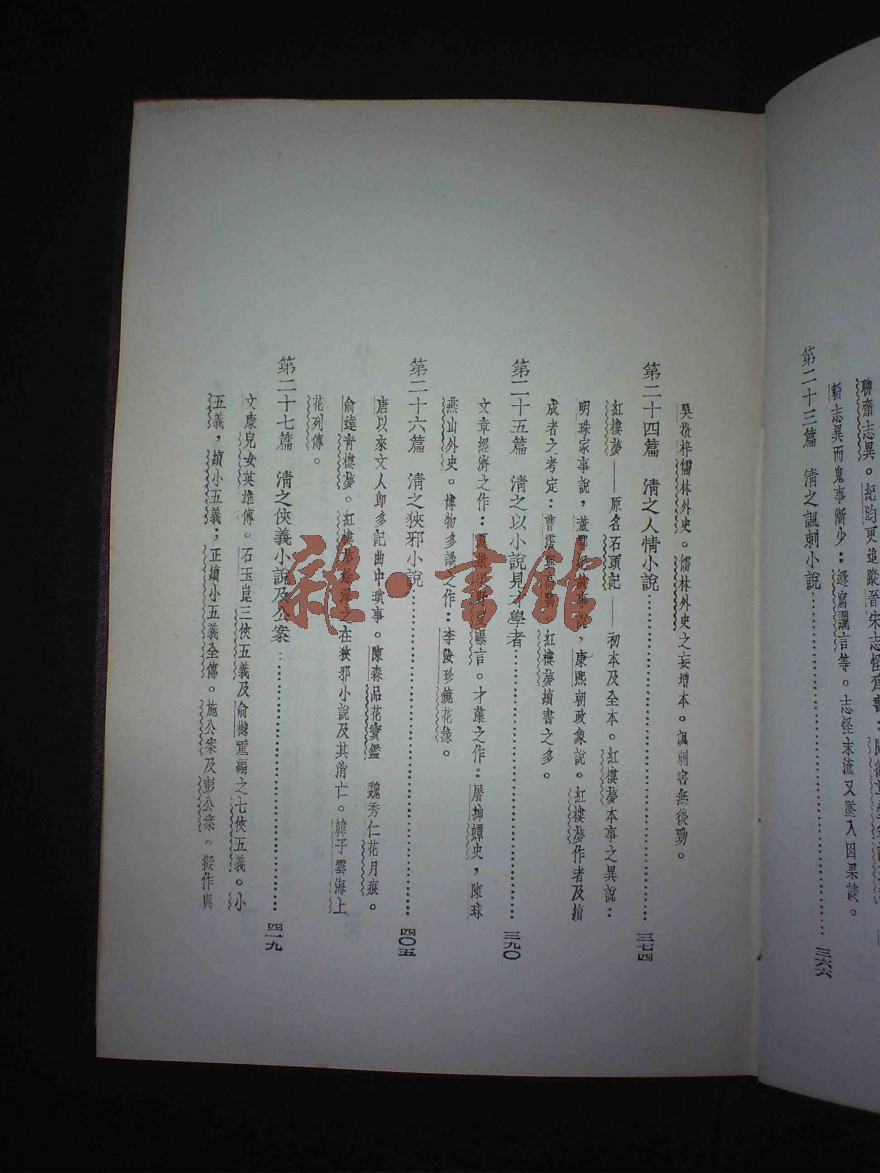 聊齋志異。紀昀更追蹤晉宋志怪
漸志異而鬼事漸少：
言等。志怪末流又墜入因果談。
第二十三篇　清之諷刺小說……三六六
吳敬梓儒林外史。儒林外史之妄增本。諷刺書無後勁。
第二十四篇　清之人情小說……三七四
紅樓夢——原名石頭記——初本及全本。紅樓夢本事之異說：
明珠家事說，董鄂妃故事說，康熙朝政象說。紅樓夢作者及續
成者之考定：曹霑與高鶚　紅樓夢續書之多。
第二十五篇　清之以小說見才學者……三九〇
文章經濟之作：夏敬渠野叟曝言。才藻之作：屠紳蟫史，陳球
燕山外史。博物多識之作：李汝珍鏡花緣。
第二十六篇　清之狹邪小說……四〇五
唐以來文人即多記曲中瑣事。陳森品花寶鑑　魏秀仁花月痕。
俞達青樓夢。紅樓夢之在狹邪小說及其消亡。韓子雲海上
花列傳。
第二十七篇　清之俠義小說及公案……四一九
文康兒女英雄傳。石玉崑三俠五義及俞樾重編之七俠五義。小
五義，續小五義；正續小五義全傳。施公案及彭公案。擬作與
雜·書館